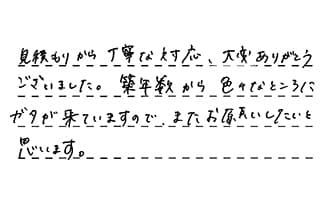 見積もりから丁寧な対応、大変ありがとう
ございました。築年数から色々なところに
ガタが来ていますので、またお願いしたいと
思います。